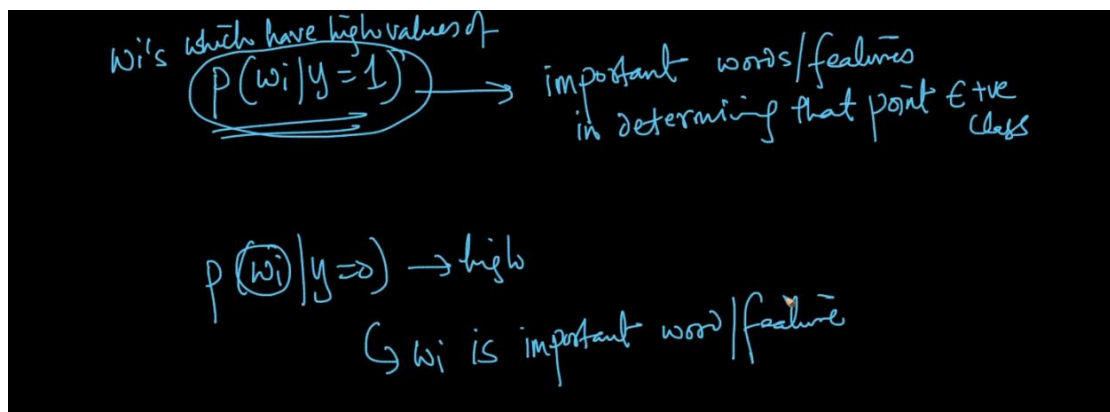 wi's which have high values of
P(wi|y=1) → important words/features
in determining that point ∈ +ve
class
P(wi|y=0) → high
↳ wi is important word/feature